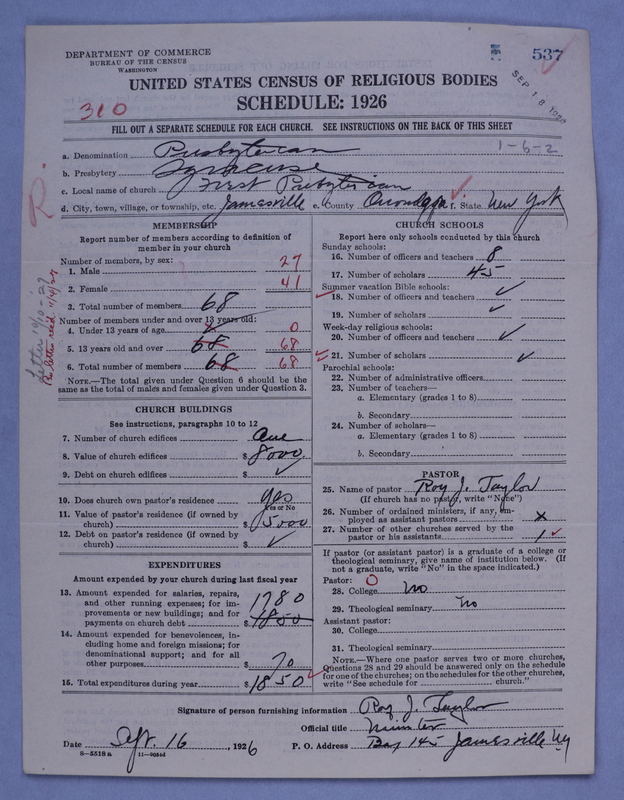 DEPARTMENT OF COMMERCE
BUREAU OF THE CENSUS
WASHINGTON
537
SEP 18
UNITED STATES CENSUS OF RELIGIOUS BODIES
SCHEDULE: 1926
310
FILL OUT A SEPARATE SCHEDULE FOR EACH CHURCH. SEE INSTRUCTIONS ON THE BACK OF THIS SHEET
1-6-2
a. Denomination Presbyterian
b. Presbytery Syracuse
c. Local name of church First Presbyterian
d. City, town, village, or township, etc. Jamesville e. County Onondaga f. State New York
R.
MEMBERSHIP
Report number of members according to definition of
member in your church
Number of members, by sex:
1. Male 27
2. Female 41
3. Total number of members 68
Number of members under and over 13 years old:
4. Under 13 years of age 0
5. 13 years old and over 68 68
6. Total number of members 68 68
NOTE.—The total given under Question 6 should be the
same as the total of males and females given under Question 3.
CHURCH BUILDINGS
See instructions, paragraphs 10 to 12
7. Number of church edifices One
8. Value of church edifices $ 8000
9. Debt on church edifices $ ✓
10. Does church own pastor's residence Yes
Yes or No
11. Value of pastor's residence (if owned by
church) $ 5000
12. Debt on pastor's residence (if owned by
church) $ ✓
EXPENDITURES
Amount expended by your church during last fiscal year
13. Amount expended for salaries, repairs,
and other running expenses; for im-
provements or new buildings; and for
payments on church debt $ 1780 1850
14. Amount expended for benevolences, in-
cluding home and foreign missions; for
denominational support; and for all
other purposes $ 70
15. Total expenditures during year $ 1850 ✓
CHURCH SCHOOLS
Report here only schools conducted by this church
Sunday schools:
16. Number of officers and teachers 8
17. Number of scholars 45
Summer vacation Bible schools:
18. Number of officers and teachers ✓
19. Number of scholars ✓
Week-day religious schools:
20. Number of officers and teachers ✓
21. Number of scholars ✓
Parochial schools:
22. Number of administrative officers
23. Number of teachers—
a. Elementary (grades 1 to 8)
b. Secondary
24. Number of scholars—
a. Elementary (grades 1 to 8)
b. Secondary
PASTOR
25. Name of pastor Roy J. Taylor
(If church has no pastor, write "None")
26. Number of ordained ministers, if any, em-
ployed as assistant pastors x
27. Number of other churches served by the
pastor or his assistants 1 ✓
If pastor (or assistant pastor) is a graduate of a college or
theological seminary, give name of institution below. (If
not a graduate, write "No" in the space indicated.)
Pastor: O
28. College no
29. Theological seminary no
Assistant pastor:
30. College
31. Theological seminary
NOTE.—Where one pastor serves two or more churches,
Questions 28 and 29 should be answered only on the schedule
for one of the churches; on the schedules for the other churches,
write "See schedule for church."
Signature of person furnishing information Roy J. Taylor
Official title Minister
Date Sept. 16, 1926 P. O. Address Box 145 Jamesville NY
8-5518a 11-9054d